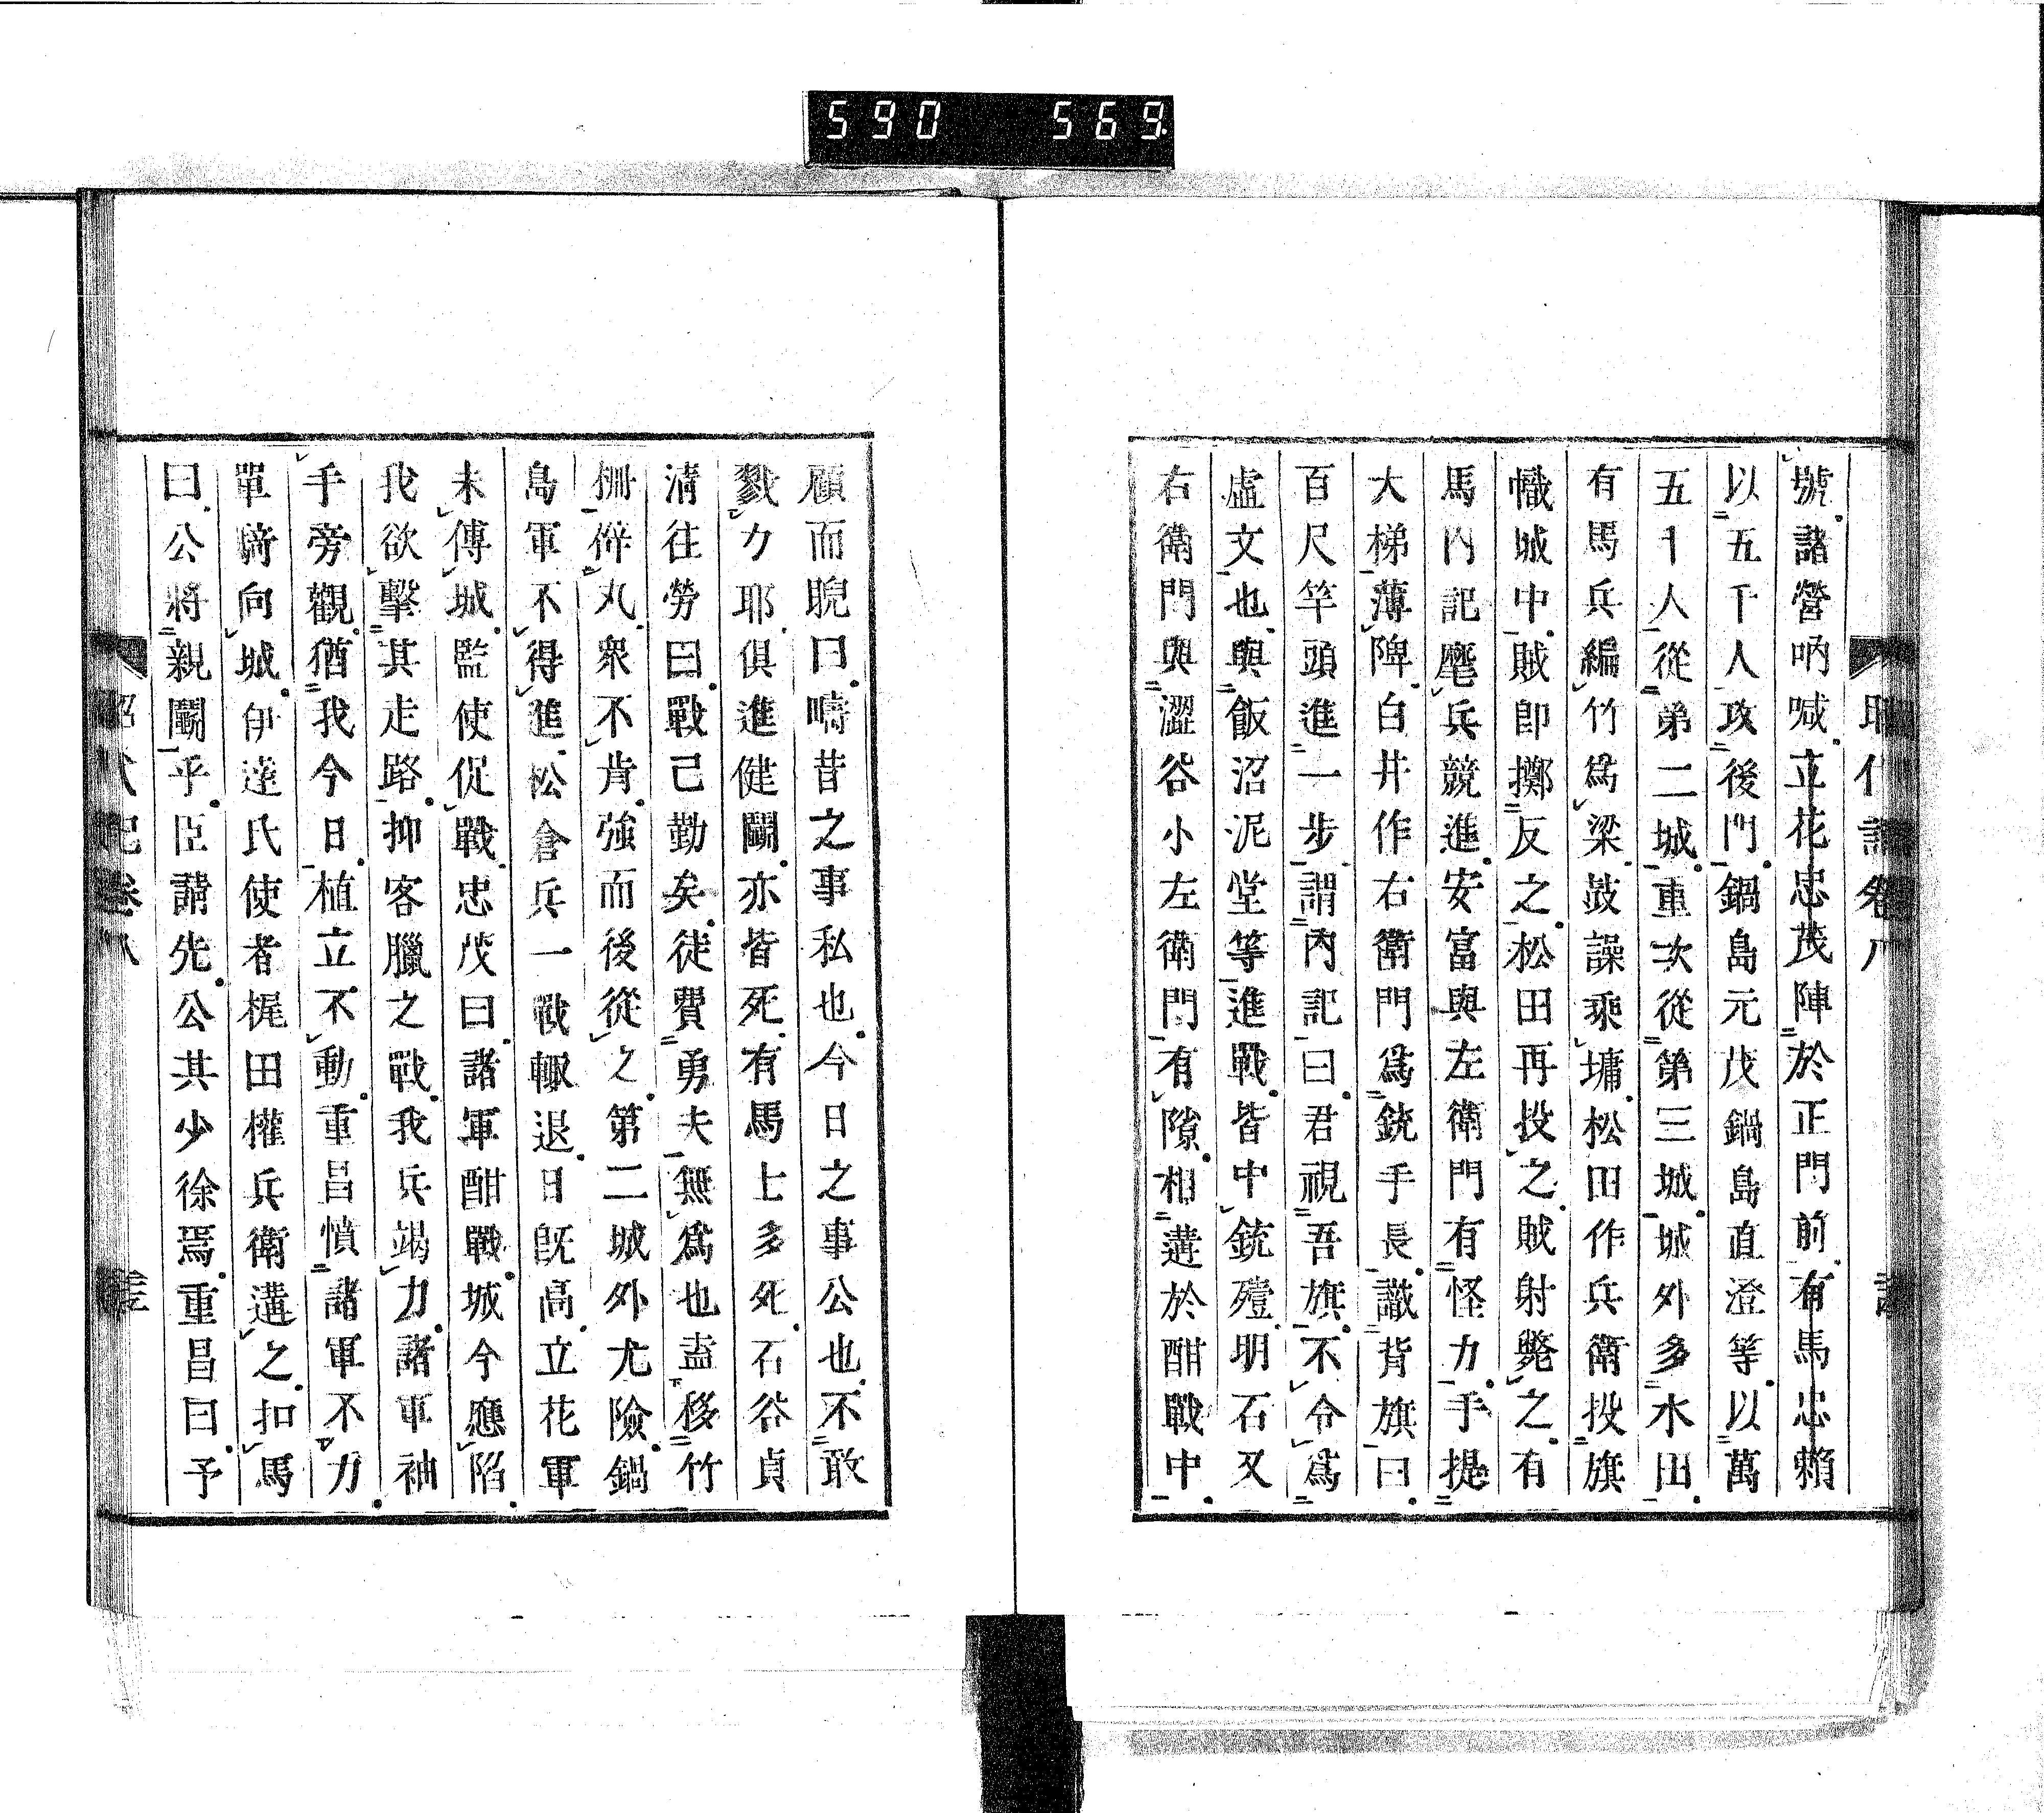 590 569
號諸營吶喊立花忠茂陣於正門前有馬忠賴
以五千人攻後門鍋島元茂鍋島直澄等以萬
五千人從弟二城重次從第三城城外多水田
有馬兵編竹爲梁鼓譟乘墉松田作兵衛投旗
幟城中賊卽擲反之松田再投之賊射斃之有
馬內記麾兵競進安富與左衛門有怪力手提
大梯薄陴白井作右衛門爲銃手長識背旗曰
百尺竿頭進一步謂內記曰君視吾旗不令爲
虛文也與飯沼泥堂等進戰皆中銃殪明石又
右衛門與澀谷小左衛門有隙相遘於酣戰中
顧而睨曰嚋昔之事私也今日之事公也不敢
戮力耶俱進健鬭亦皆死有馬士多死石谷貞
清往勞曰戰已勤矣徒費勇夫無爲也盍移竹
柵倅丸衆不肯強而後從之第二城外尤險鍋
島軍不得進松倉兵一戰輙退日旣高立花軍
未傅城監使促戰忠茂曰諸軍酣戰城今應陷
我欲擊其走路抑客臘之戰我兵竭力諸軍袖
手旁觀猶我今日植立不動重昌憤諸軍不力
單騎向城伊達氏使者梶田權兵衛遘之扣馬
曰公將親鬭乎臣請先公其少徐焉重昌曰予
昭代記卷八